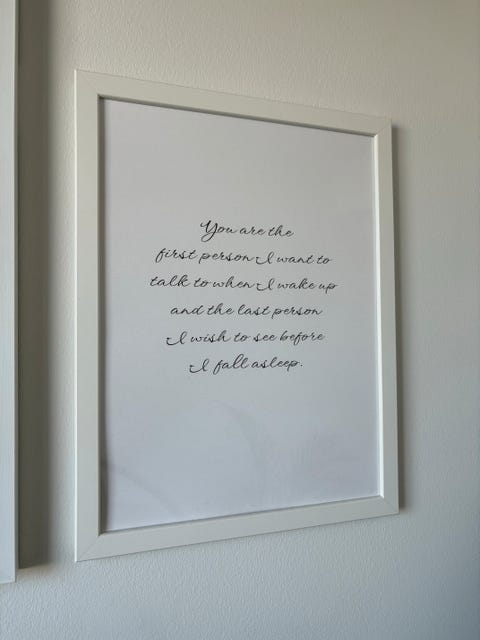 You are the
first person I want to
talk to when I wake up
and the last person
I wish to see before
I fall asleep.